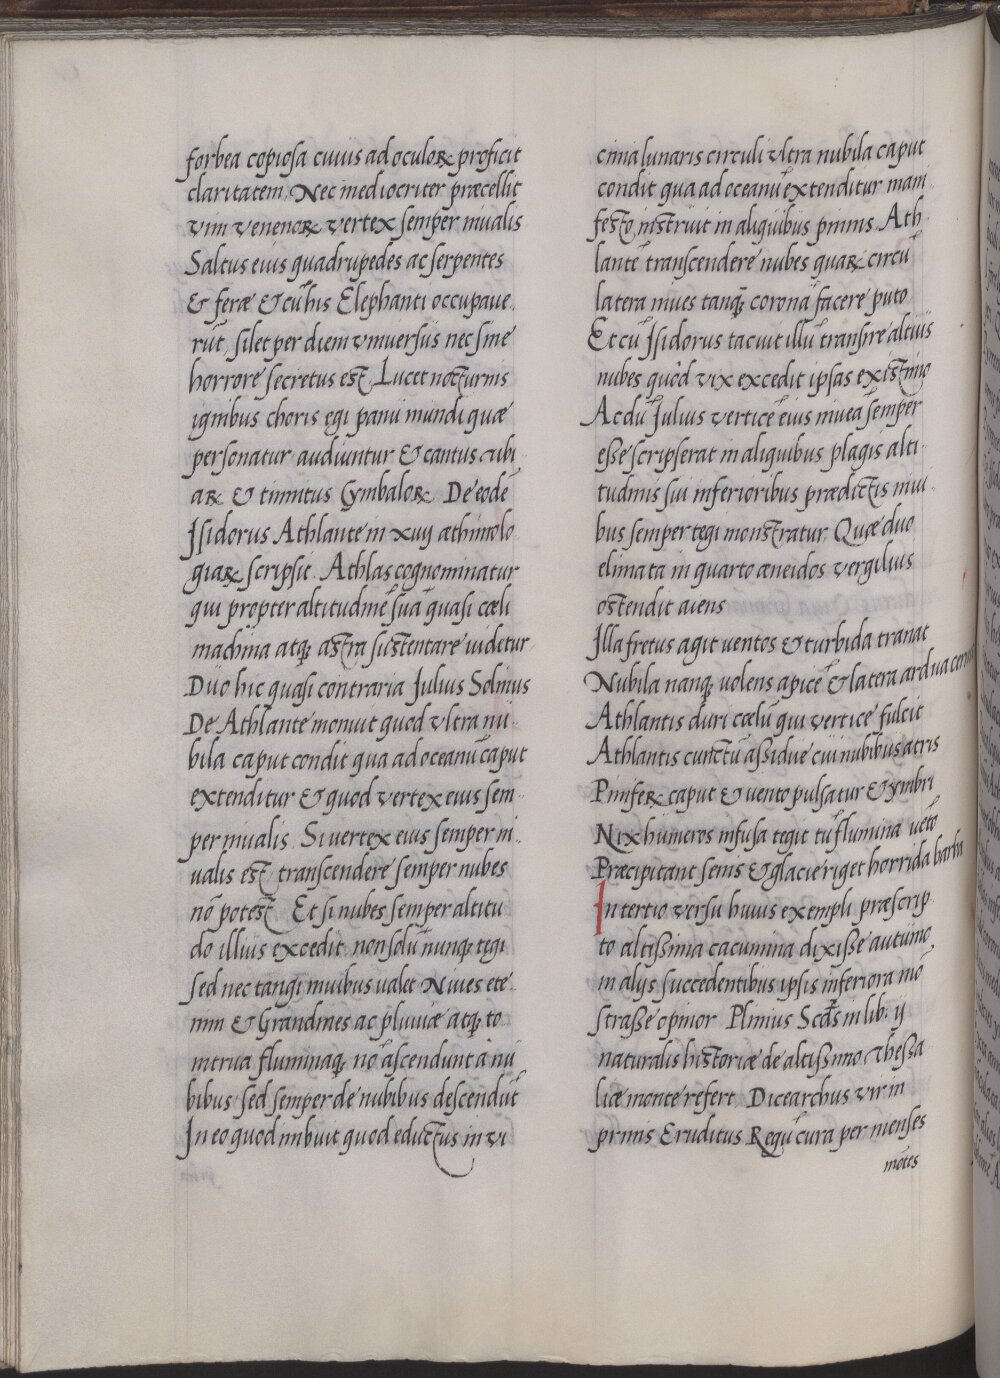 forbea copiosa cuius ad oculoꝝ proficit
claritatem. Nec mediocriter præcellit
vim venenoꝝ vertex semper niualis
Saltus eius quadrupedes ac serpentes
& feræ & cū his Elephanti occupaue
rūt, silet per diem vniuersus nec sine
horrore secretus est, Lucet nocturnis
ignibus choris egi panū mundi quæ
personatur audiuntur & cantus tibi
aꝝ & tinnitus Cymbaloꝝ De eodē
Isidorus Athlante in xiiij æthimolo
giaꝝ scripsit. Athlas cognominatur
qui propter altitudinē suā quasi cœli
machina atqꝫ astra sustentare uidetur
Duo hic quasi contraria Julius Solinus
De Athlante monuit quod vltra nu
bila caput condit qua ad oceanū caput
extenditur & quod vertex eius sem
per niualis. Si uertex eius semper ni
ualis est, transcendere semper nubes
nō potest Et si nubes semper altitu
do illius excedit, non solū nunqꝫ tegi
sed nec tangi niuibus ualet Niues ete
nim & Grandines ac pluuiæ atqꝫ to
nitrua fluminaqꝫ nō ascendunt a nu
bibus sed semper de nubibus descendūt
In eo quod imbuit quod eductus in vi
cinia lunaris circuli vltra nubila caput
condit qua ad oceanū extenditur mani
festo, instruit in aliquibus pinnis Ath
lantē transcendere nubes quaꝝ circū
latera niues tanqꝫ coronā facere puto
Et cū Isidorus tacuit illū transire altius
nubes quòd vix excedit ipsas existimo
Ac dū Julius verticē eius niuea semper
esse scripserat in aliquibus plagis alti
tudinis sui inferioribus prædictis niui
bus semper tegi monstratur. Quæ duo
elimata in quarto æneidos vergilius
ostendit aiens
Illa fretus agit uentos & turbida tranat
Nubila nanqꝫ uolens apicē & latera ardua cernit
Athlantis duri cœlū qui vertice fulcit
Athlantis cunctū assidue cui nubibus atris
Pinifeꝝ caput & uento pulsatur & ymbri
Nix humeros infusa tegit tū flumina uēto
Præcipitant senis & glacie riget horrida barba
In tertio versu huius exempli præscrip
to altissima cacumina dixisse autumo
in alijs succedentibus ipsis inferiora mō
strasse opinor. Plinius Scds in lib. ij
naturalis historiæ de altissimo thessa
liæ monte refert. Dicearchus vir in
primis Eruditus Regū cura per menses
mōtes